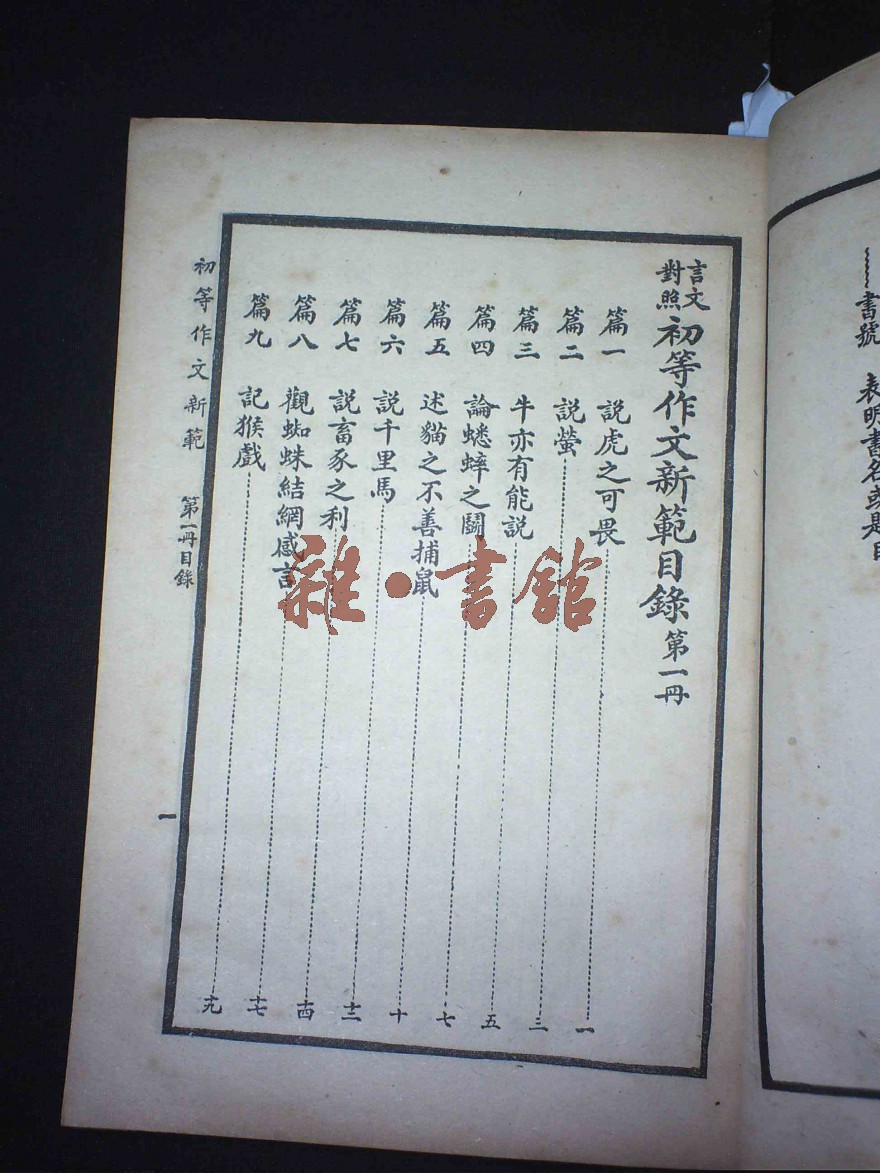 書號 表明書名或題目
言文對照初等作文新範目錄 第一冊
篇一 說虎之可畏 一
篇二 說螢 三
篇三 牛亦有能說 五
篇四 論蟋蟀之鬭 七
篇五 述貓之不善捕鼠 十
篇六 說千里馬 十三
篇七 說畜豕之利 十四
篇八 觀蜘蛛結網感言 十七
篇九 記猴戲 十九
初等作文新範 第一冊目錄 一
雜·書館